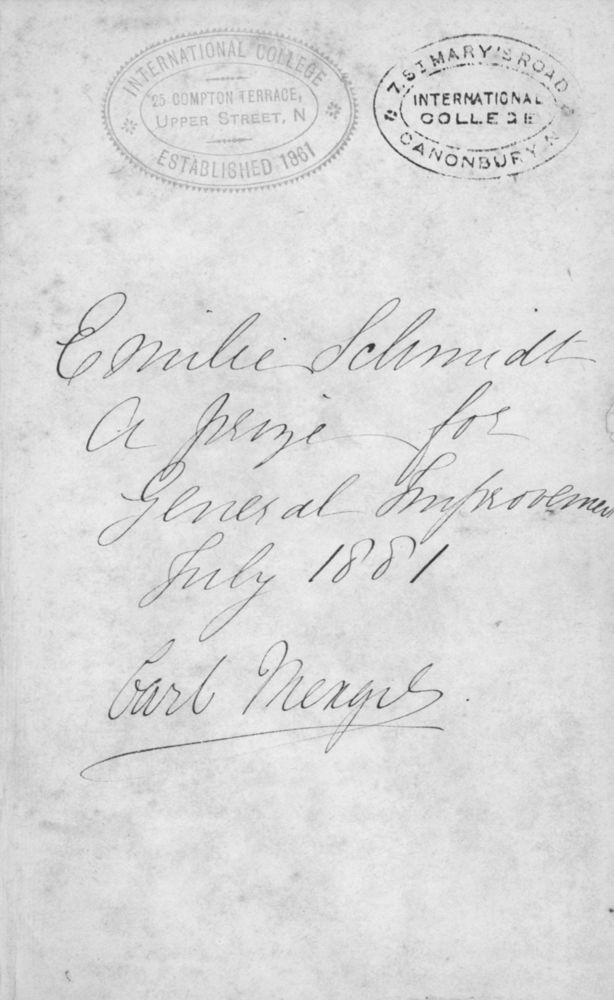 INTERNATIONAL COLLEGE
25 COMPTON TERRACE,
UPPER STREET, N
ESTABLISHED 1861
7, ST MARY'S ROAD
INTERNATIONAL
COLLEGE
CANONBURY N
Emilie Schmidt
A prize for
General Improvemen
July 1881
Carl